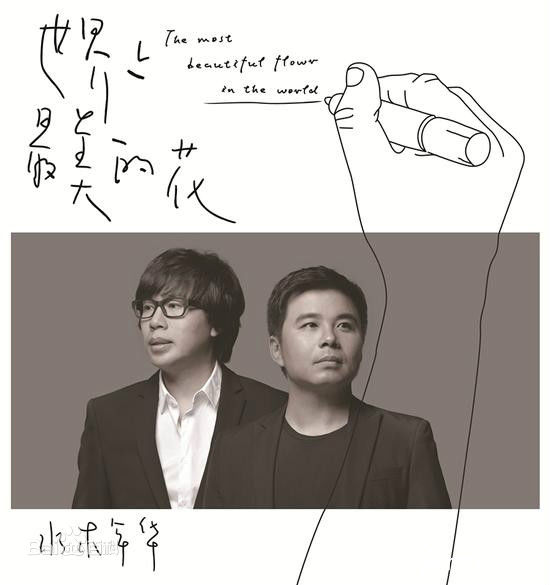 世界上
最美的花
The most
beautiful flowr
in the world
水木年华